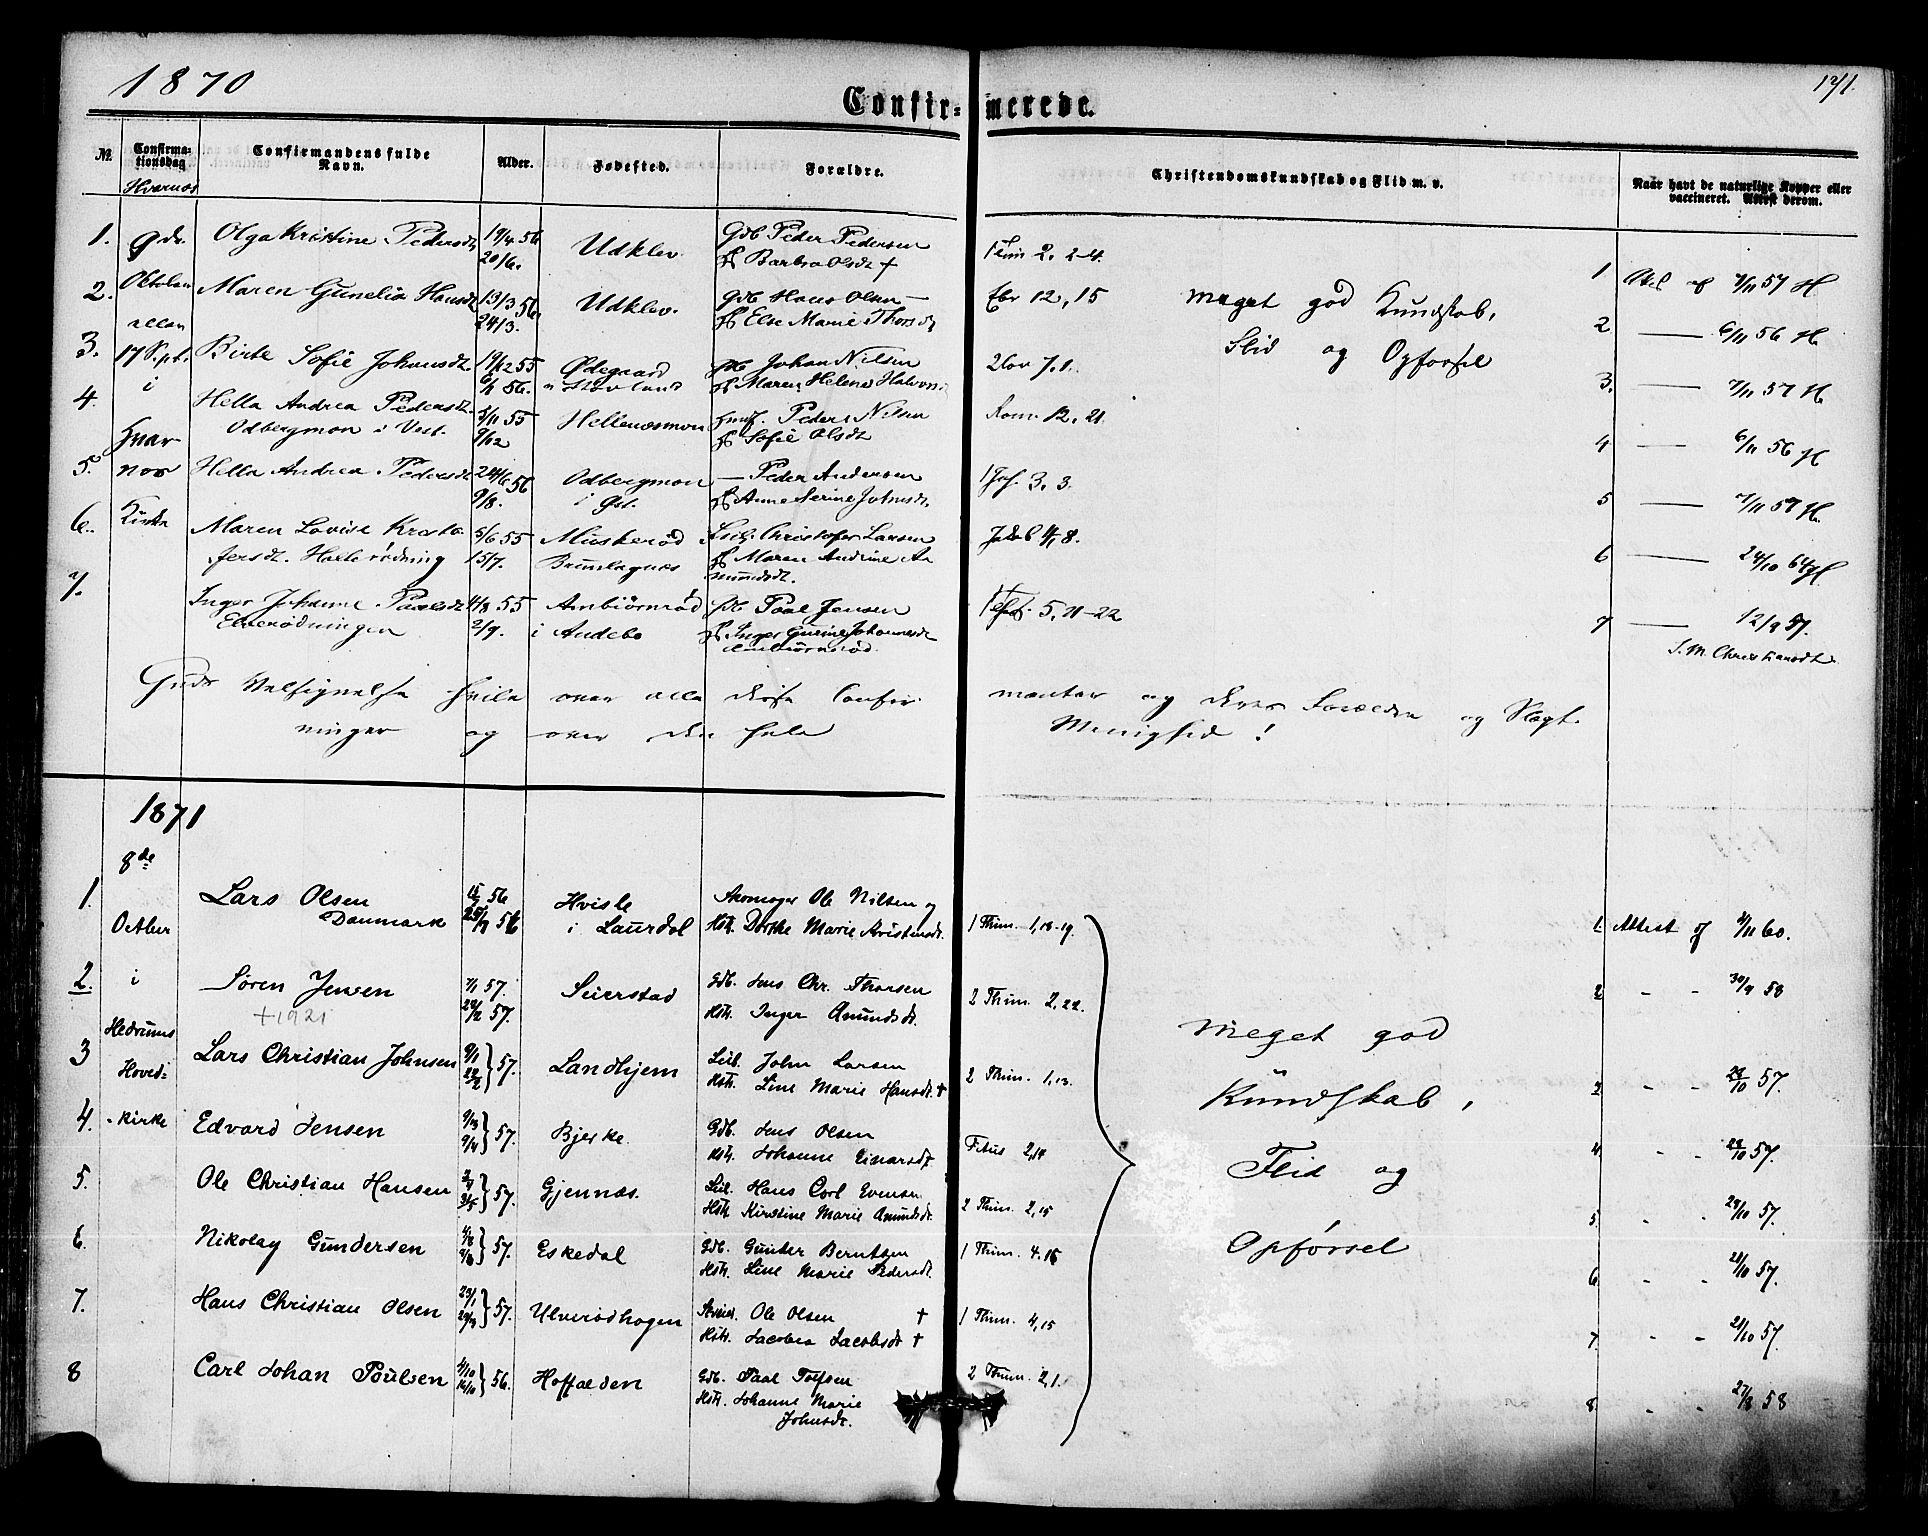 1870
171.
Confir- merede.
№
Confirma-
tionsdag
Confirmandens fulde
Navn.
Alder.
Fødested.
Forældre.
Christendomskundskab og Flid m. v.
Naar havt de naturlige Kopper eller
vaccineret. Attest derom.
Hvarnæs
1. 9de Olga Kristine Pedersdt 19/4 56 Udklev Gdb Peder Pedersen 1 Tim 2. 2-4. 1 Att. af 7/11 57 H
20/6. H Barbra Olsdt †
2. Oktober Maren Gunelia Hansdt 13/3 56 Udklev. Gdb Hans Olsen Ebr 12, 15 meget god Kundskab, 2 — 6/11 56 H
24/3. H Else Marie Thorsdt
3. 17 Sept. Birte Sofie Johansdt. 19/12 55 Ødegaard Johan Nilsen 2 Cor 7.1. Flid og Opførsel 3. — 7/11 57 H
i 6/1 56. Maren Helene Halvors
4. Hella Andrea Pedersdt. 5/11 55 Hellenæsmon Husf. Peder Nilsen Rom. 12. 21 4 — 6/11 56 H
Odbergmon i Vest. 9/12 H Sofie Olsdt
Hvar-
5. nes Hella Andrea Pedersdt 24/6 56 Odbergmon — Peder Andersen 1 Joh. 3. 3. 5 — 7/11 57 H
9/8. i Øst. H Anne Serine Johnsdt.
6. Kirke Maren Lovise Kristo- 5/6 55 Muskerød Leil. Christofer Larsen Jakob 4, 8. 6 — 24/10 64 H
fersdt. 15/7. Brunlagnæs H Maren Andrine A-
mundsdt.
7. Inger Johanne Paalsdt 11/8 55 Ambiörnrød Gdb Paal Jensen 5, 21-22 7 — 12/9 57.
2/9. i Andebo H Inger Gurine Johannesdt
Ambiörnrød.
S. M. Christiansdt
Guds Velsignelse hvile over alle disse Confir- manter og deres Forældre og Slægt.
ninger og over den hele Menighed!
1871
8de
1. Lars Olsen 56 Hvisle Ole Nilsen og 1. Attest af 3/11 60.
Danmark 25/1 56 i Laurdal Hst. Dorthe Marie Kristensdt. 1 Thim. 1, 18-19.
October
2. i Søren Jensen 7/1 57. Seierstad Gdb. Jens Chr. Thorsen 2 Thim. 2, 22. 2 - - 30/9 58
22/2 57. Hst. Inger Amundsdt.
†1921
Hedrums
3 Hoved= Lars Christian Johnsen 9/1 22/2 57. Landhjem Leil. John Larsen 2 Thim. 1, 13. meget god 3 - - 23/10 57.
Hst. Line Marie Hansdt. †
Kundskab,
4. -kirke Edvard Jensen 9/3 9/4 57. Bjerke. Gdb. Jens Olsen Titus 2,14 4. - - 23/10 57.
Hst. Johanne Einarsdt
5. Ole Christian Hansen 31/5 57. Gjennæs. Leil. Hans Carl Evensen 2 Thim. 2, 15 Flid og 5. - - 24/10 57.
Hst. Kirstine Marie Amundsdt.
6. Nikolay Gundersen 57. Eskedal Gdb. Gunder Berntsen 1 Thim. 4, 16 Opførsel 6. - - 21/10 57.
Hst. Line Marie Pedersdt.
7. Hans Christian Olsen 23/1 57. Ulverødhagen Ole Olsen † 1 Thim. 4, 15 7. - - 21/10 57.
Hst. Jacobea Jacobsdt †
8 Carl Johan Poulsen 4/10 16/10 56. Hoffalden Gdb. Paal Tolfsen 2 Thim. 2, 1. 8. - - 27/8 58
Hst. Johanne Marie
Johnsdt.